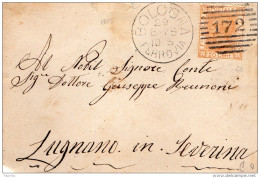 BOLOGNA
29
8-75
10 S
FERROVIA
172
Al Nobil Signore Conte
Sig. Dottore Giuseppe
Lugnano in Teverina